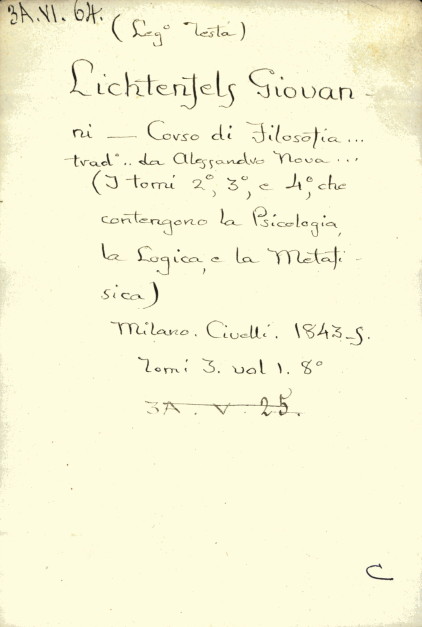 3A.VI. 64.
(Leg° Testa)
Lichtenfels Giovan-
ni — Corso di Filosofia...
trad°.. da Alessandro Nova...
(I tomi 2°, 3°, e 4°, che
contengono la Psicologia,
la Logica, e la Metafi-
sica)
Milano. Civelli. 1843-5.
Tomi 3. vol 1. 8°
3A. V. 25.
C